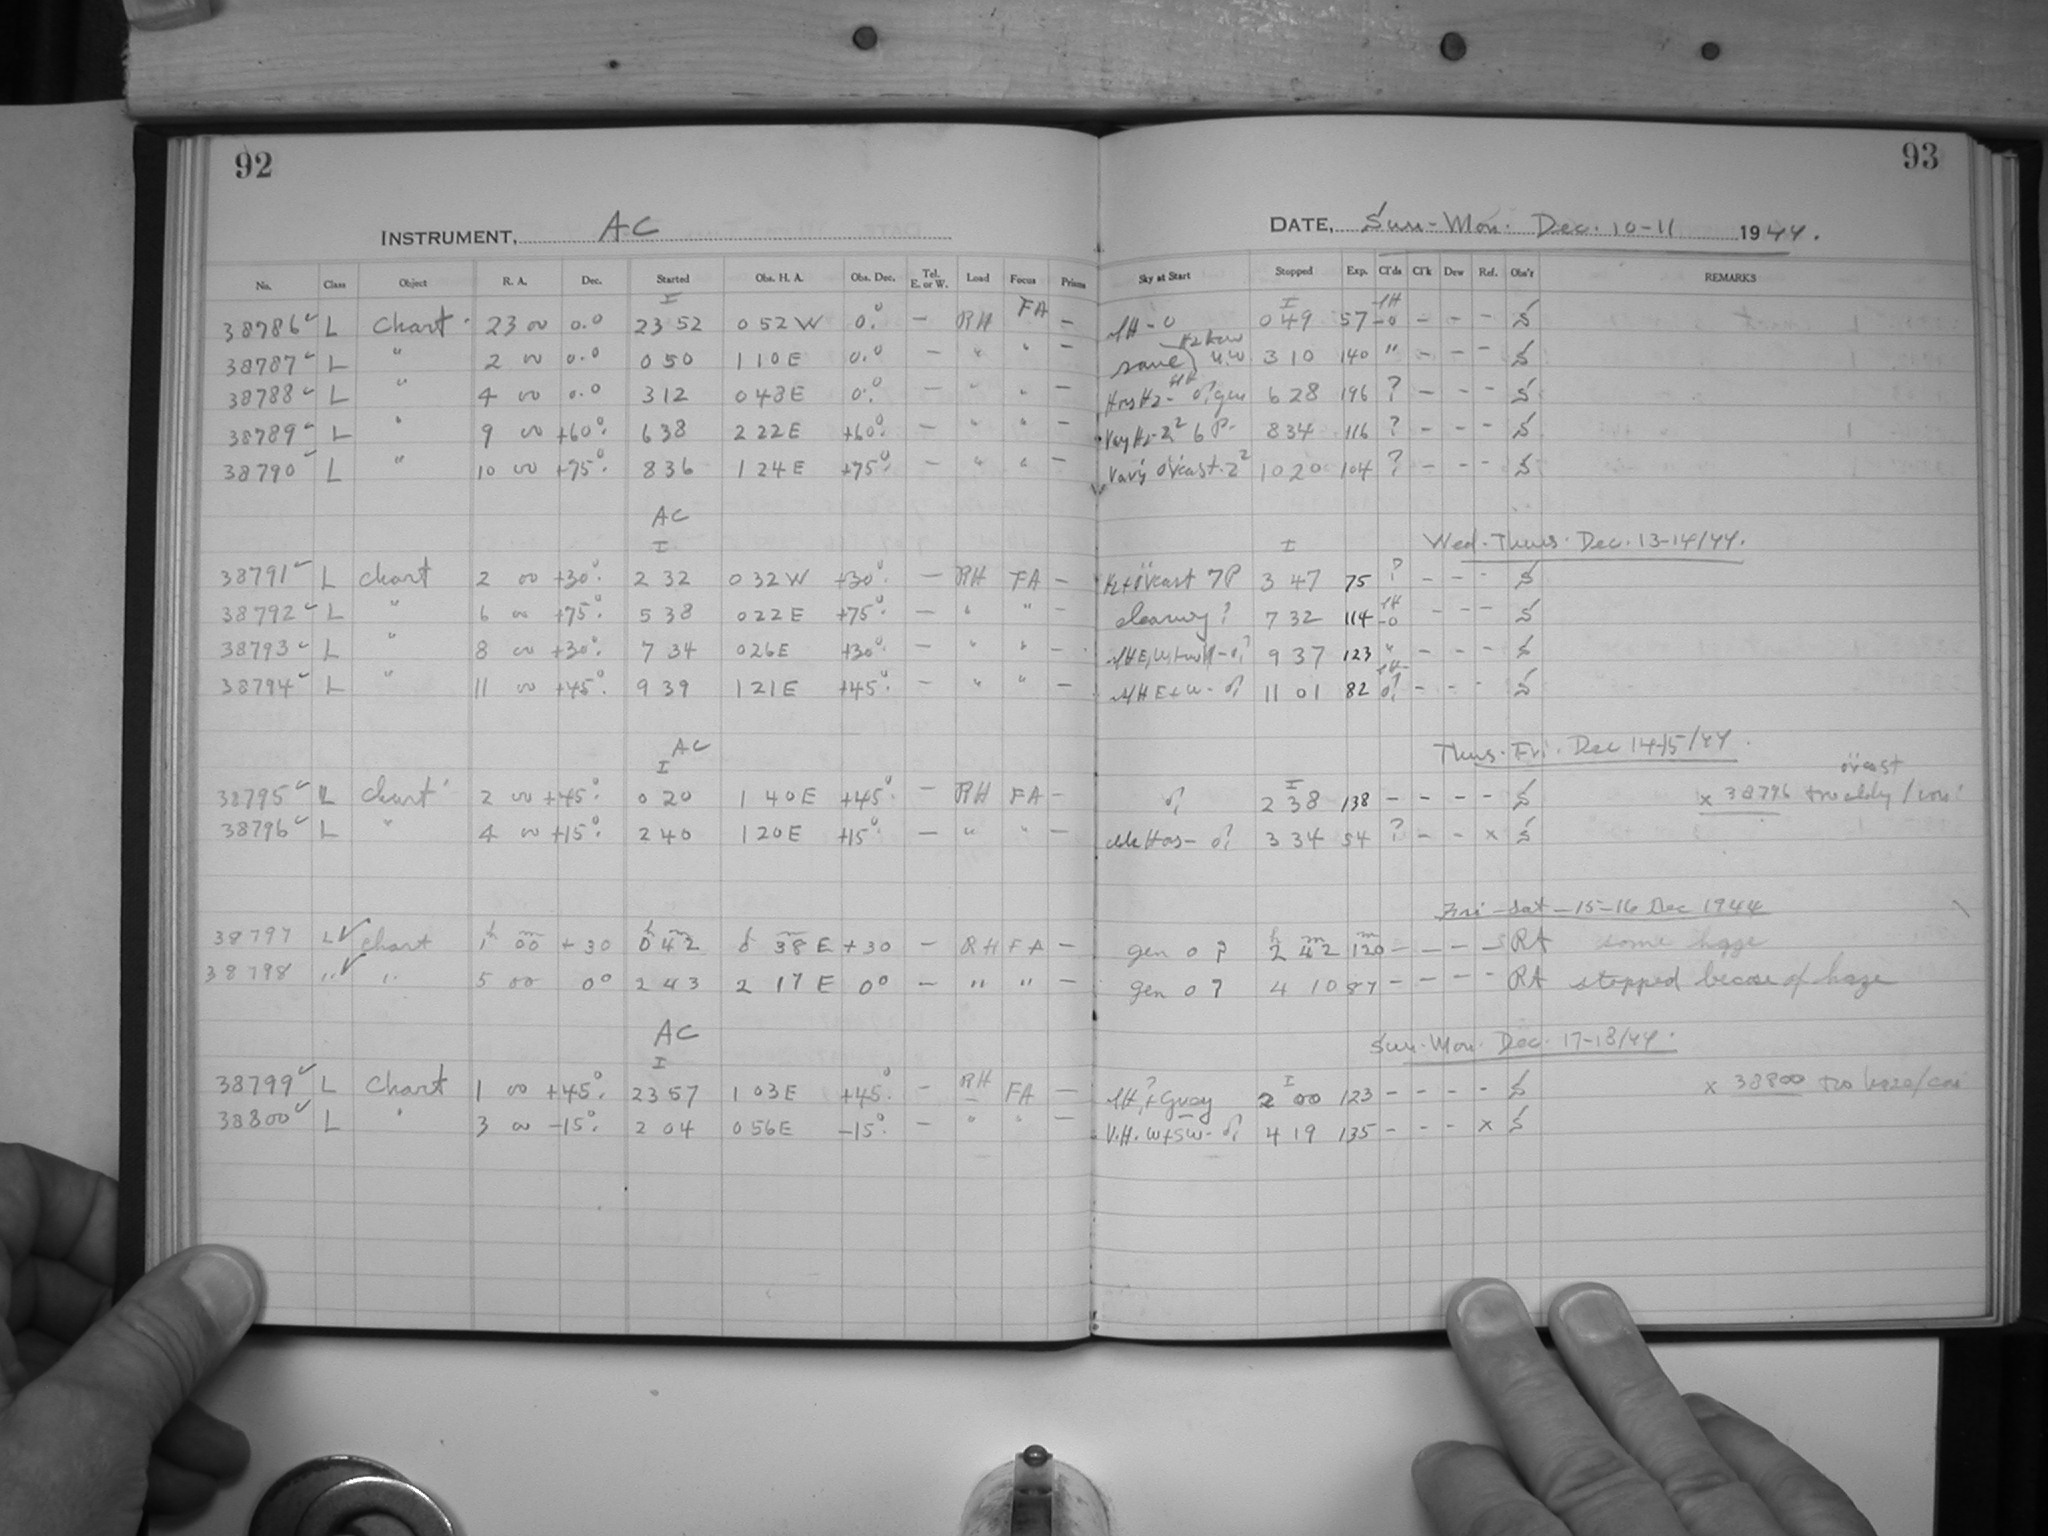 92
93
INSTRUMENT, AC
DATE, Sun-Mon. Dec. 10-11 1944.
No. Class Object R. A. Dec. Started Obs. H. A. Obs. Dec. Tel. E. or W. Load Focus Prisms Sky at Start Stopped Exp. Cl'ds Cl'k Dew Ref. Obs'r REMARKS
I I
38786 ✓ L Chart 23 00 0.0 23 52 0 52 W 0.° – RH FA – – 0 0 49 57 – 0 – – – S
38787 ✓ L " 2 00 0.0 0 50 1 10 E 0.° – " " – same 3 10 140 " – – – S
38788 ✓ L " 4 00 0.0 3 12 0 48 E 0.° – " " – 6 28 196 ? – – – S
38789 ✓ L " 9 00 +60°. 6 38 2 22 E +60°. – " " – 8 34 116 ? – – – S
38790 ✓ L " 10 00 +75°. 8 36 1 24 E +75°. – " " – 10 20 104 ? – – – S
AC
I I Wed-Thurs. Dec. 13-14/44.
38791 ✓ L Chart 2 00 +30°. 2 32 0 32 W +30°. – RH FA – 7P 3 47 75 ? – – – S
38792 ✓ L " 6 00 +75°. 5 38 0 22 E +75°. – " " – clearing? 7 32 114 – 0 – – – S
38793 ✓ L " 8 00 +30°. 7 34 0 26 E +30°. – " " – 9 37 123 " – – – S
38794 ✓ L " 11 00 +45°. 9 39 1 21 E +45°. – " " – 11 01 82 – – – S
AC Thurs-Fri. Dec 14-15/44.
I I
38795 ✓ L Chart 2 00 +45°. 0 20 1 40 E +45°. – RH FA – 2 38 138 – – – – S x 38796 too cldy / ovcast
38796 ✓ L " 4 00 +15°. 2 40 1 20 E +15°. – " " – 3 34 54 ? – – x S
Fri – Sat – 15-16 Dec 1944
38797 L ✓ Chart 1h 00m +30 0h 42m 0h 38 E +30 – RH FA – gen 0 ? 2h 42m 120 – – – – RA some haze
38798 " ✓ " 5 00 0° 2 43 2 17 E 0° – " " – gen 0 ? 4 10 87 – – – – RA stopped becase of haze
AC Sun-Mon. Dec. 17-18/44.
I I
38799 ✓ L Chart 1 00 +45°. 23 57 1 03 E +45°. – RH FA – 2 00 123 – – – – S x 38800
38800 ✓ L " 3 00 –15°. 2 04 0 56 E –15°. – " " – V.H. W+SW- 4 19 135 – – – x S